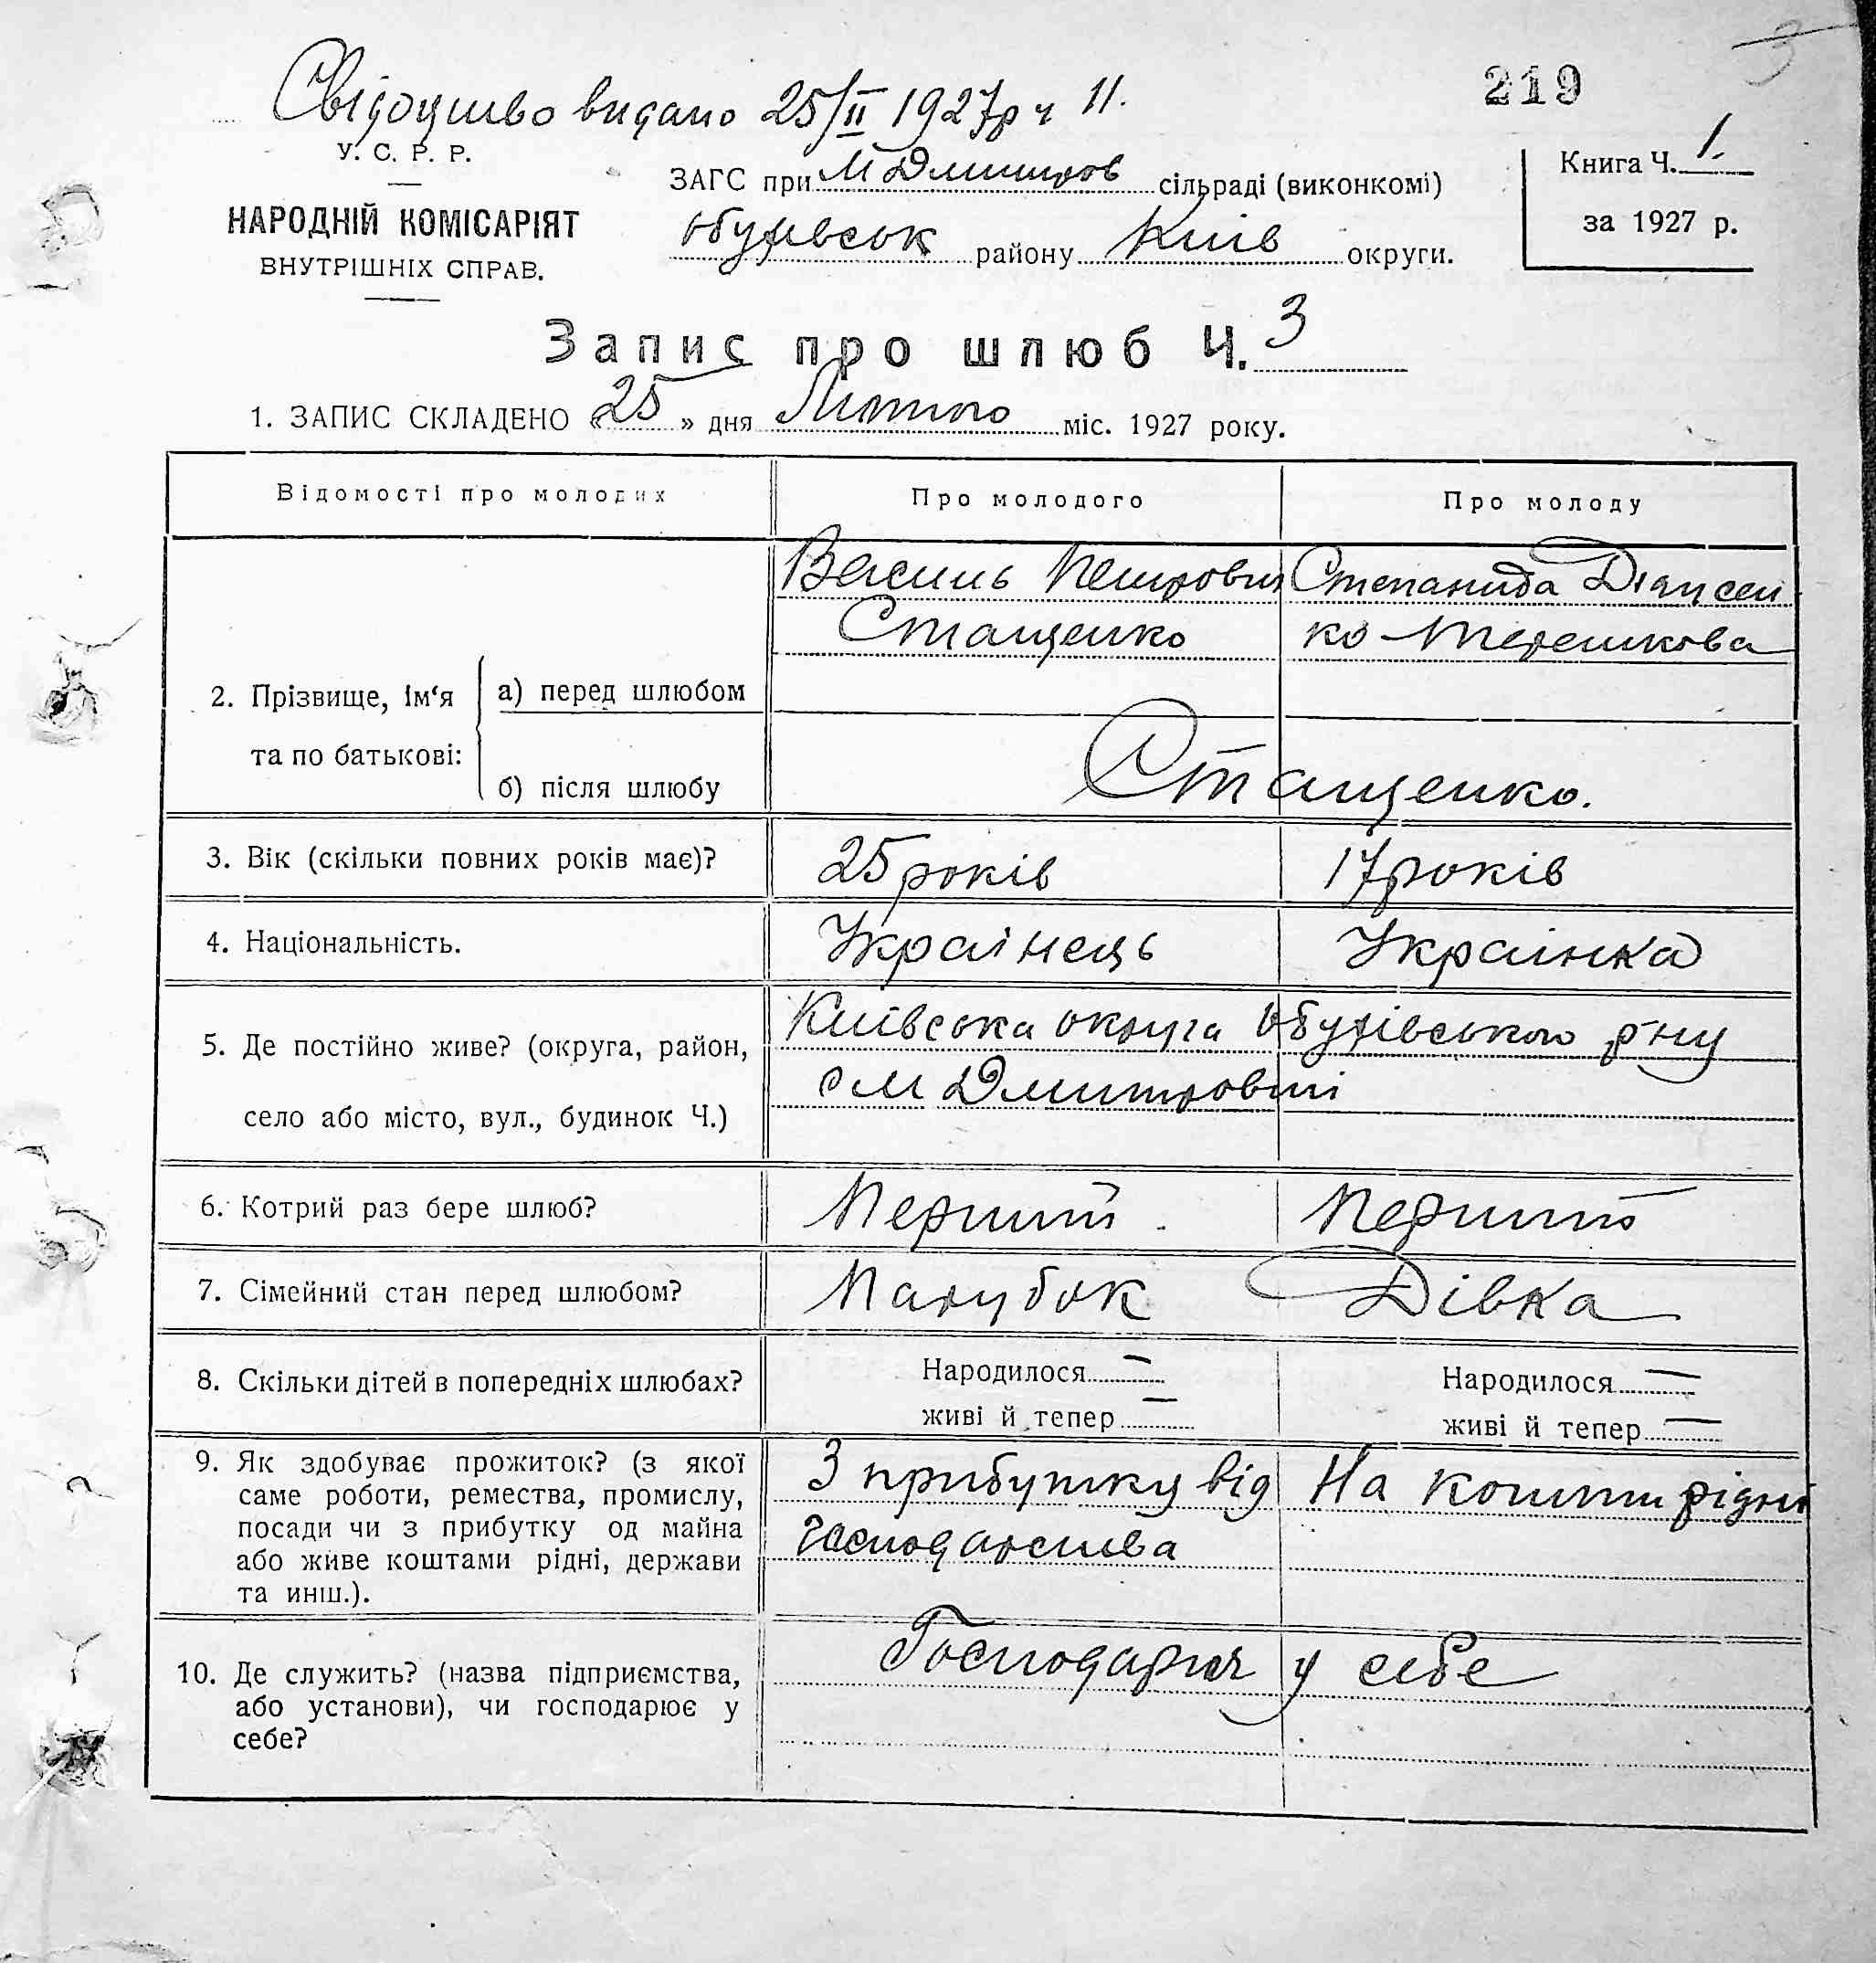 3
219
Свідоцтво видано 25/II 1927р ч 11.
У. С. Р. Р.
НАРОДНІЙ КОМІСАРІЯТ
ВНУТРІШНІХ СПРАВ.
ЗАГС при М Дмитров сільраді (виконкомі)
Обухівськ району Київ округи.
Книга Ч. 1.
за 1927 р.
Запис про шлюб Ч. 3
1. ЗАПИС СКЛАДЕНО «25» дня Лютого міс. 1927 року.
Відомості про молодих
Про молодого
Про молоду
2. Прізвище, ім‘я
та по батькові:
а) перед шлюбом
Василь Петрович
Стащенко
Степанида
ко Терешкова
б) після шлюбу
Стащенко.
3. Вік (скільки повних років має)?
25 років
17 років
4. Національність.
Украінець
Украінка
5. Де постійно живе? (округа, район,
село або місто, вул., будинок Ч.)
Київська округа Обухівського р-ну
с М Дмитровці
6. Котрий раз бере шлюб?
Перший
Перший
7. Сімейний стан перед шлюбом?
Парубок
Дівка
8. Скільки дітей в попередніх шлюбах?
Народилося —
живі й тепер —
Народилося —
живі й тепер —
9. Як здобуває прожиток? (з якої
саме роботи, ремества, промислу,
посади чи з прибутку од майна
або живе коштами рідні, держави
та инш.).
З прибутку від
господарства
На кошти рідні
10. Де служить? (назва підприємства,
або установи), чи господарює у
себе?
у себе